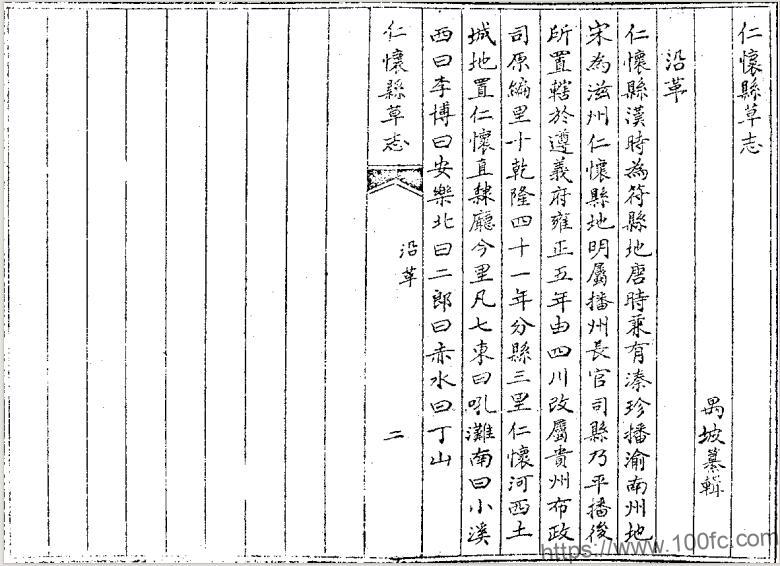 仁懷縣草志
禺坡纂輯
沿革
仁懷縣漢時為符縣地唐時兼有溱珍播渝南州地
宋為滋州仁懷縣地明屬播州長官司縣乃平播後
所置轄於遵義府雍正五年由四川改屬貴州布政
司原編里十乾隆四十一年分縣三里仁懷河西土
城地置仁懷直隸廳今里凡七東曰吼灘南曰小溪
西曰李博曰安樂北曰二郎曰赤水曰丁山
仁懷縣草志
沿革
二
https://www.100fc.com